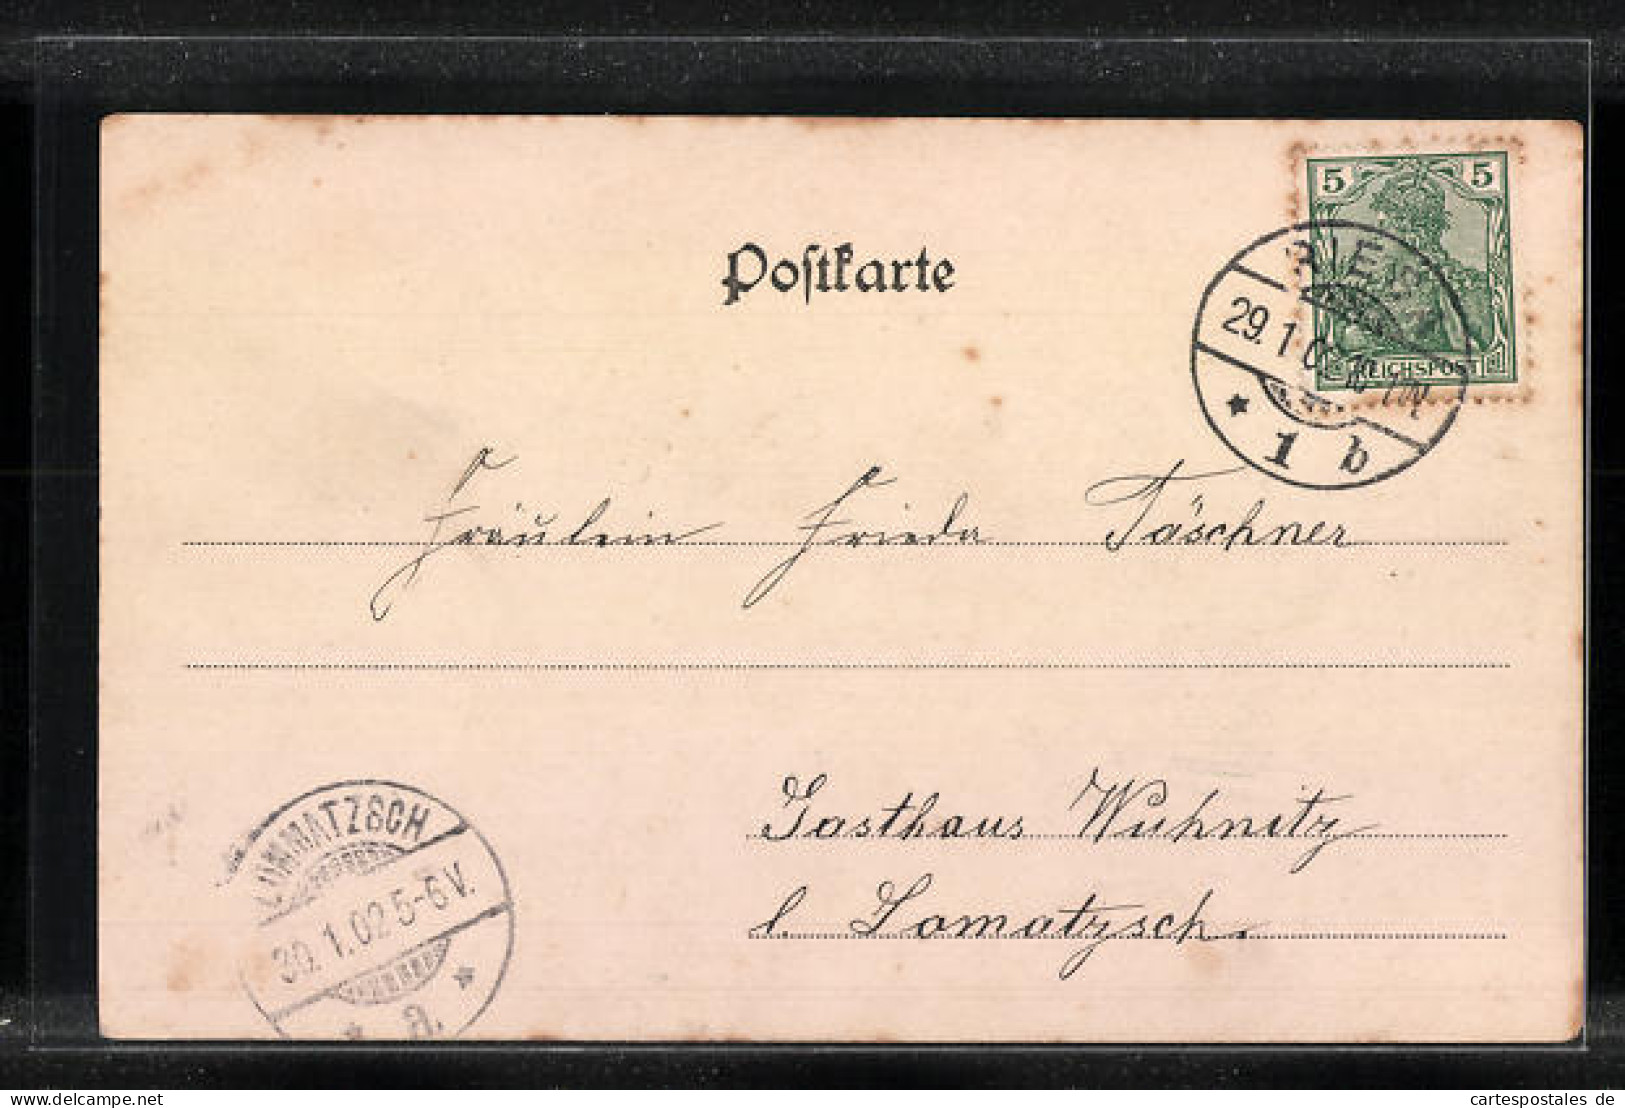 5 5
Postkarte
RIESA
29. 1 02
REICHSPOST
* 1 b
Fräulein Frieda Täschner
Gasthaus Wuhnitz
b. Lomatzsch.
LOMMATZSCH
30. 1. 02 5-6 V.
* a. *
www.cartespostales.de
cartespostales de